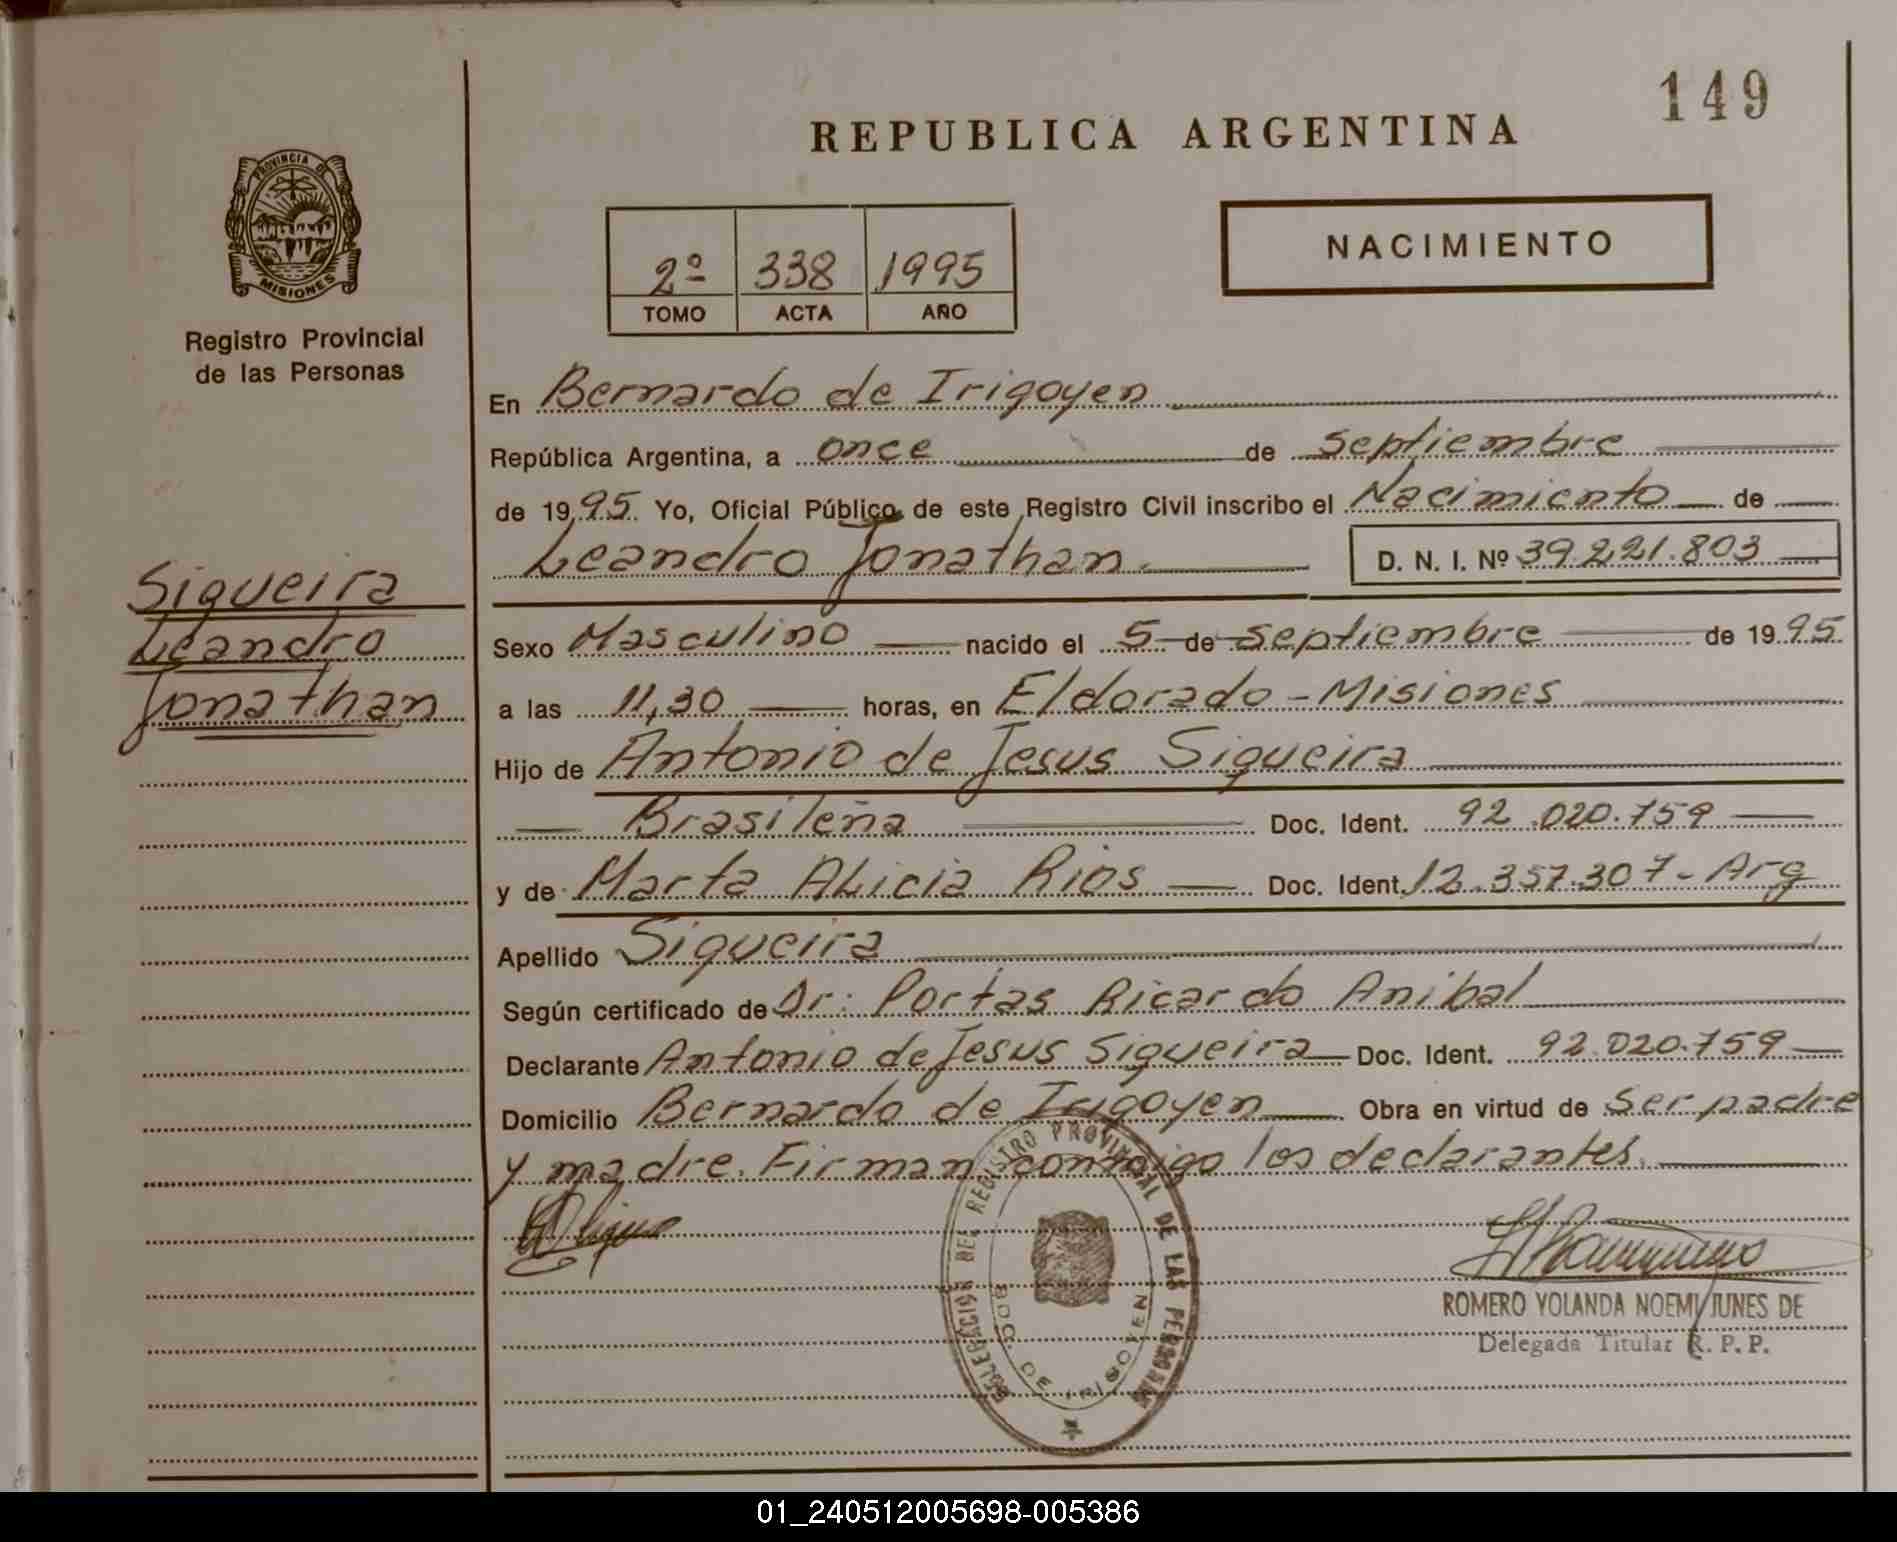 149
REPUBLICA ARGENTINA
PROVINCIA DE
MISIONES
Registro Provincial
de las Personas
NACIMIENTO
2º 338 1995
TOMO ACTA AÑO
En Bernardo de Irigoyen
República Argentina, a once de septiembre
de 1995 Yo, Oficial Público de este Registro Civil inscribo el Nacimiento de
Leandro Jonathan. D. N. I. Nº 39.221.803
Siqueira
Leandro
Jonathan
Sexo Masculino nacido el 5 de septiembre de 1995
a las 11,30 horas, en Eldorado - Misiones
Hijo de Antonio de Jesus Siqueira
Brasileña Doc. Ident. 92.020.759
y de Marta Alicia Rios Doc. Ident. 12.357.307 - Arg
Apellido Siqueira
Según certificado de Dr: Portas Ricardo Anibal
Declarante Antonio de Jesus Siqueira Doc. Ident. 92.020.759
Domicilio Bernardo de Irigoyen Obra en virtud de ser padre
y madre. Firman conmigo los declarantes.
DELEGACION DEL REGISTRO PROVINCIAL DE LAS PERSONAS
BDO. DE IRIGOYEN
ROMERO YOLANDA NOEMI JUNES DE
Delegada Titular R. P. P.
01_240512005698-005386